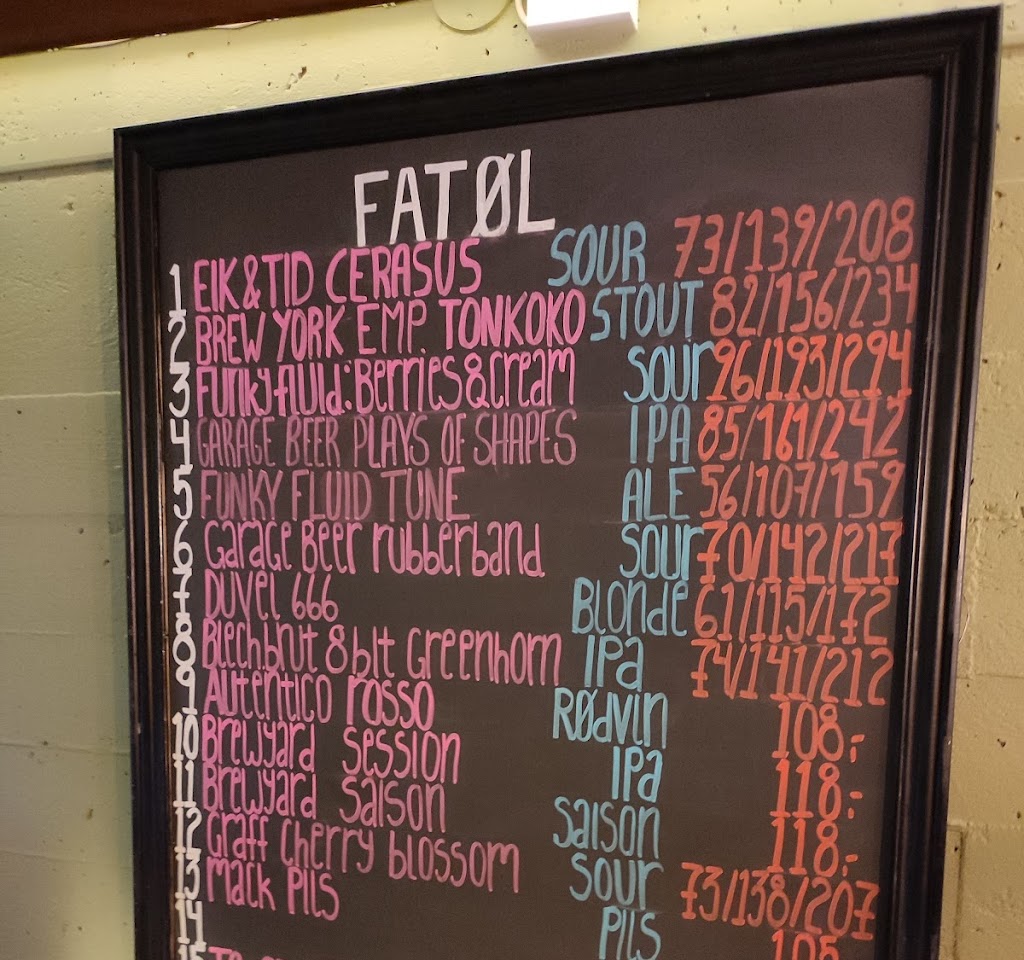 FATØL
1 EIK & TID CERASUS SOUR 73/139/208
2 BREW YORK EMP. TONKOKO STOUT 82/156/234
3 Funky fluid: Berries & Cream SOUR 96/193/294
4 GARAGE BEER PLAYS OF SHAPES IPA 85/161/242
5 FUNKY FLUID TUNE ALE 56/107/159
6 Garage Beer rubberband SOUR 70/142/217
7 DUVEL 666 BLONDE 61/115/172
8 Blech.brut 8 bit Greenhorn IPA 74/141/212
9 Autentico rosso RØDVIN 108:-
10 Brewyard Session IPA 118:-
11 Brewyard Saison Saison 118:-
12 Graff Cherry Blossom Sour 73/138/207
13 Mack Pils PILS 105
14
15